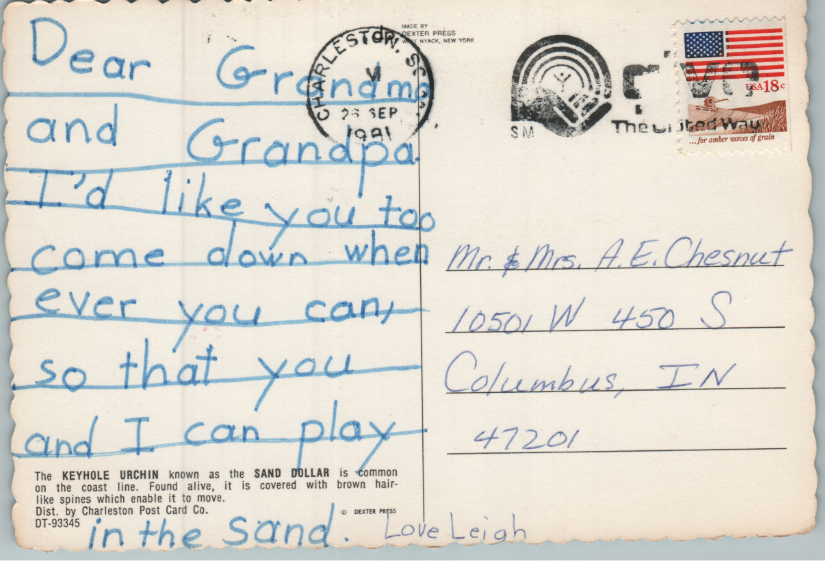 Dear Grandma
and Grandpa
I'd like you too
come down when
ever you can,
so that you
and I can play
in the sand. Love Leigh
The KEYHOLE URCHIN known as the SAND DOLLAR is common
on the coast line. Found alive, it is covered with brown hair-
like spines which enable it to move.
Dist. by Charleston Post Card Co.
DT-93345
© DEXTER PRESS
MADE BY
DEXTER PRESS
WEST NYACK, NEW YORK
CHARLESTON, SC
26 SEP
1981
SM
The United Way
USA 18c
...for amber waves of grain
Mr. & Mrs. A.E. Chesnut
10501 W 450 S
Columbus, IN
47201